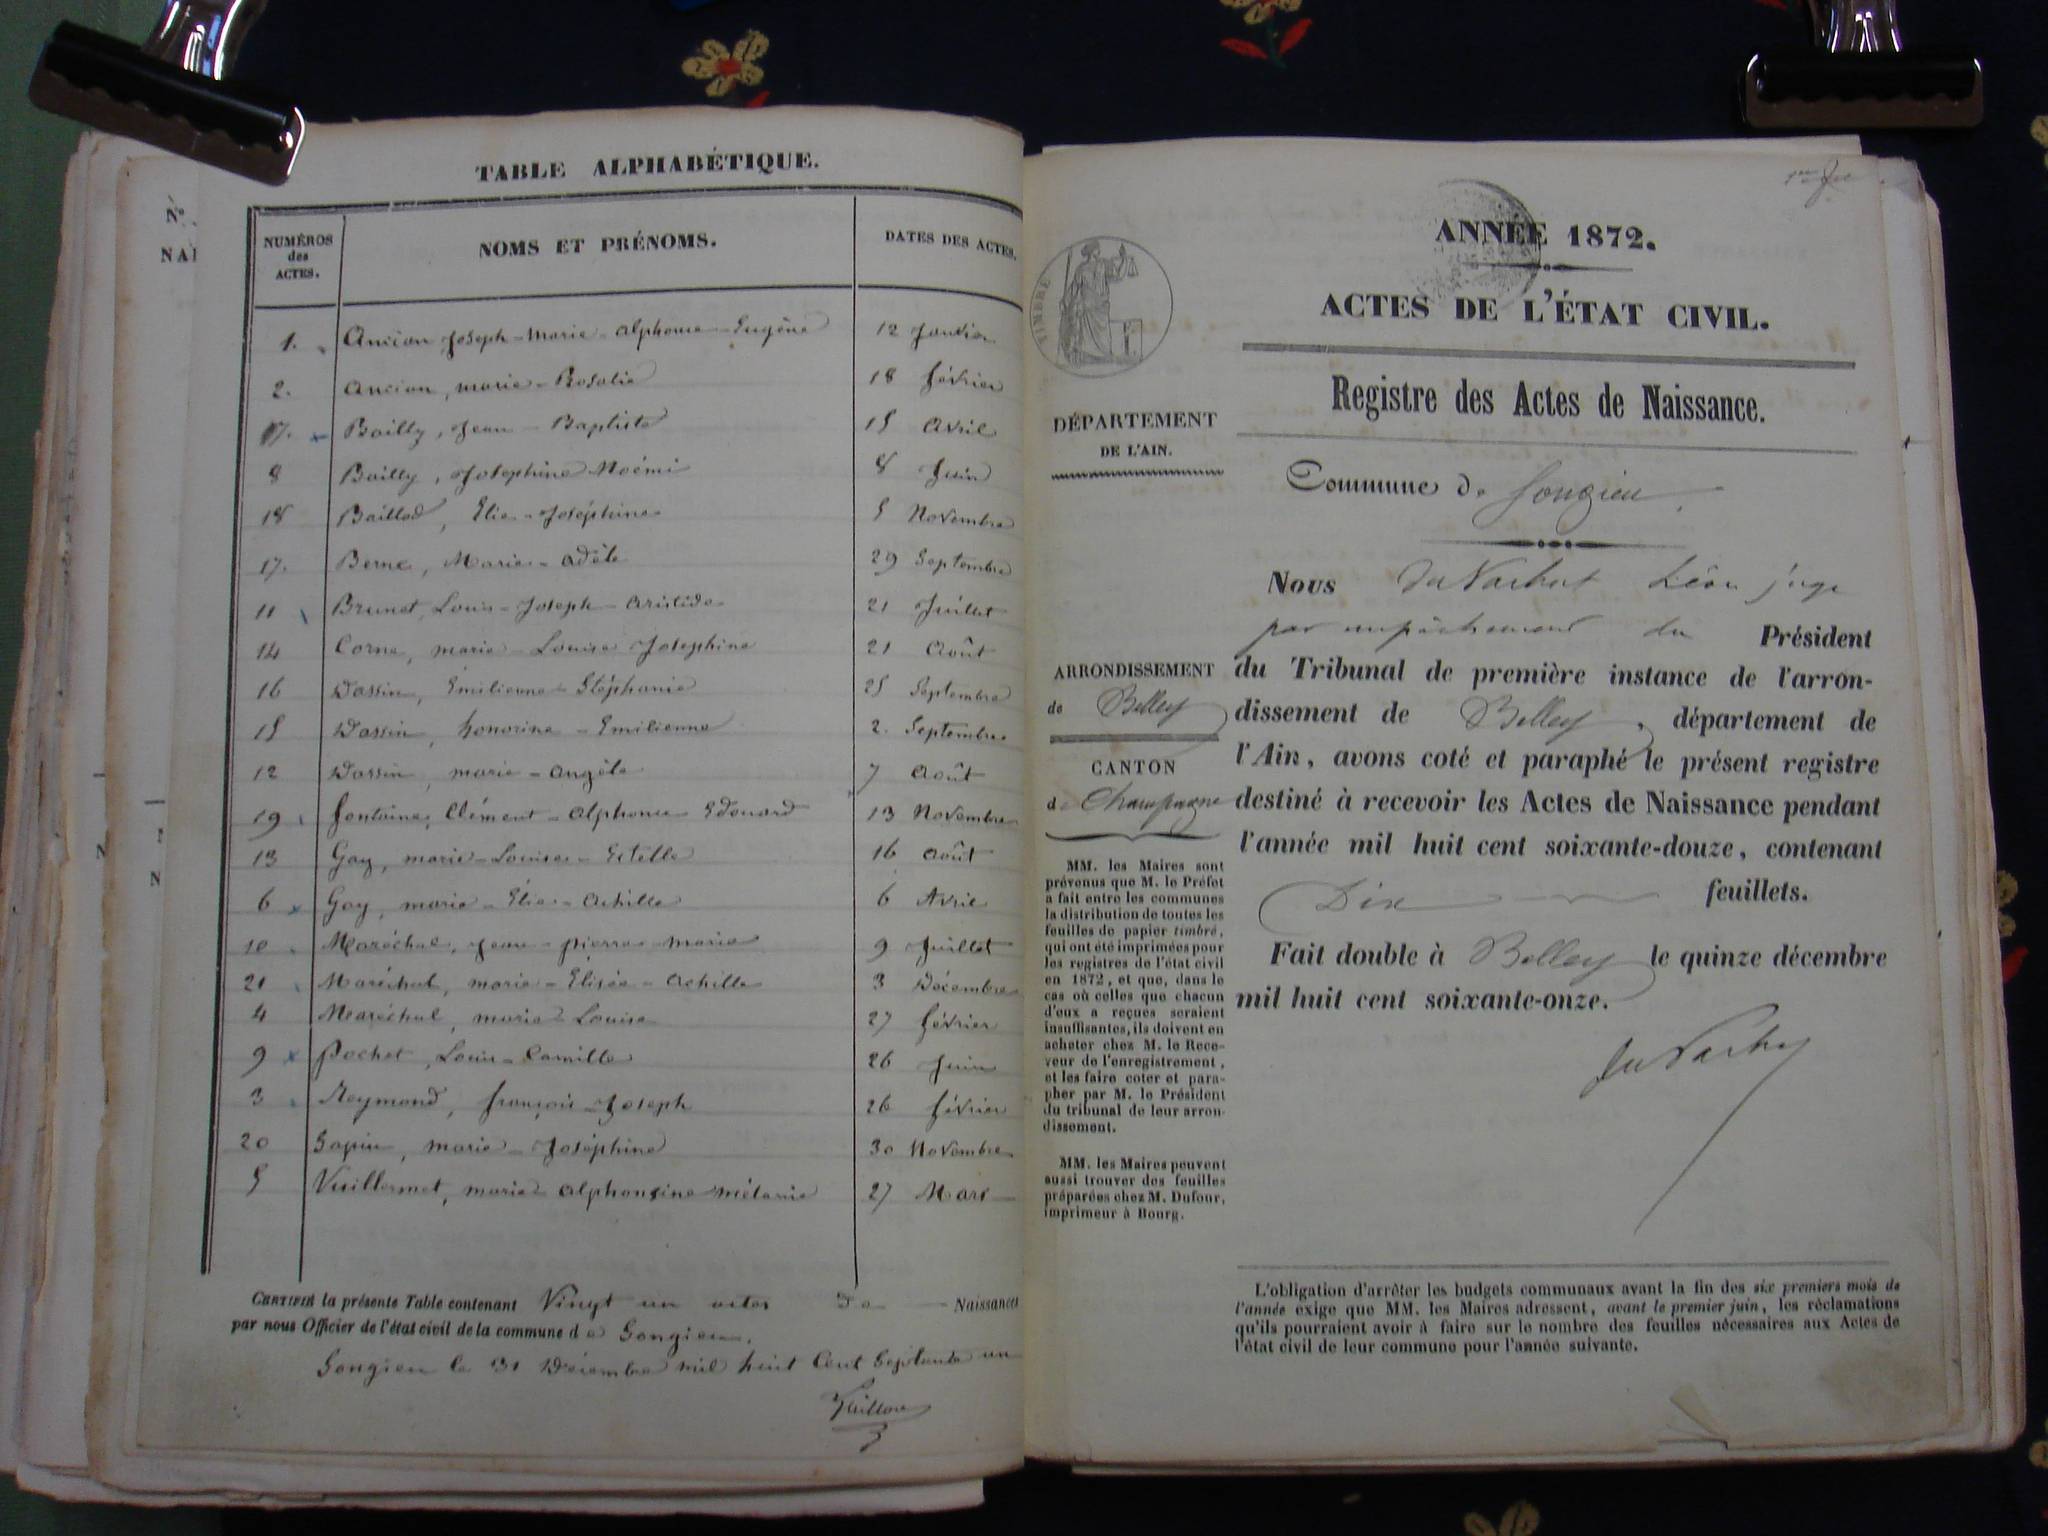 TABLE ALPHABÉTIQUE.
NUMÉROS des ACTES. NOMS ET PRÉNOMS. DATES DES ACTES.
1. Ancian Joseph-Marie-alphonse-Eugène 12 Janvier
2. Ancian, marie-Rosalie 18 février
7. Bailly, Jean-Baptiste 15 Avril
8 Bailly, Joséphine Noémi 8 Juin
18 Baillod, Elie-Joséphine 5 Novembre
17. Berne, Marie-adèle 29 Septembre
11 Brunet, Louis-Joseph-aristide 21 Juillet
14 Corne, marie-Louise Joséphine 21 Août
16 Dassin, Emilienne-Stéphanie 25 Septembre
15 Dassin, honorine-Emilienne 2. Septembre
12 Dassin, marie-angèle 7 Août
19 fontaine, Clément-alphonse Edouard 13 Novembre
13 Gay, marie-Louise-Estelle 16 Août
6 Gay, marie-Elie-achille 6 Avril
10 Maréchal, Jean-pierre-marie 9 Juillet
21 Maréchal, marie-Elisée-achille 3 Décembre
4 Maréchal, marie-Louise 27 février
9 pochet, Louis-Camille 26 Juin
3 Reymond, françois-Joseph 26 février
20 Sapin, marie-Joséphine 30 Novembre
5 Vuillermet, marie-alphonsine mélanie 27 Mars
CERTIFIÉ la présente Table contenant Vingt un actes De Naissances
par nous Officier de l'état civil de la commune de Songieu.
Songieu le 31 Décembre mil huit Cent Septante un
N°
NAI
TIMBRE
ANNÉE 1872.
ACTES DE L'ÉTAT CIVIL.
Registre des Actes de Naissance.
DÉPARTEMENT
DE L'AIN.
Commune de Songieu
Nous Léon juge
par empêchement du Président
ARRONDISSEMENT
de Belley
CANTON
de Champagne
du Tribunal de première instance de l'arron-
dissement de Belley, département de
l'Ain, avons coté et paraphé le présent registre
destiné à recevoir les Actes de Naissance pendant
l'année mil huit cent soixante-douze, contenant
Dix feuillets.
Fait double à Belley le quinze décembre
mil huit cent soixante-onze.
MM. les Maires sont
prévenus que M. le Préfet
a fait entre les communes
la distribution de toutes les
feuilles de papier timbré,
qui ont été imprimées pour
les registres de l'état civil
en 1872, et que, dans le
cas où celles que chacun
d'eux a reçues seraient
insuffisantes, ils doivent en
acheter chez M. le Rece-
veur de l'enregistrement,
et les faire coter et para-
pher par M. le Président
du tribunal de leur arron-
dissement.
MM. les Maires peuvent
aussi trouver des feuilles
préparées chez M. Dufour,
imprimeur à Bourg.
L'obligation d'arrêter les budgets communaux avant la fin des six premiers mois de
l'année exige que MM. les Maires adressent, avant le premier juin, les réclamations
qu'ils pourraient avoir à faire sur le nombre des feuilles nécessaires aux Actes de
l'état civil de leur commune pour l'année suivante.